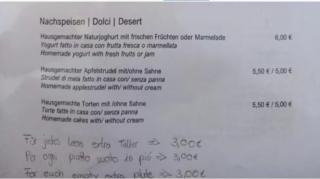 Nachspeisen | Dolci | Desert
Hausgemachter Naturjoghurt mit frischen Früchten oder Marmelade 6,00 €
Yogurt fatto in casa con frutta fresca o marmellata
Homemade yogurt with fresh fruits or jam
Hausgemachter Apfelstrudel mit/ohne Sahne 5,50 € / 5,00 €
Strudel di mela fatto in casa con/ senza panna
Homemade applestrudel with/ without cream
Hausgemachte Torten mit /ohne Sahne 5,50 € / 5,00 €
Torte fatte in casa con/ senza panna
Homemade cakes with/ without cream
Für jedes leere extra Teller => 3,00€
Per ogni piatto vuoto in più => 3,00€
For each empty extra plate => 3,00€